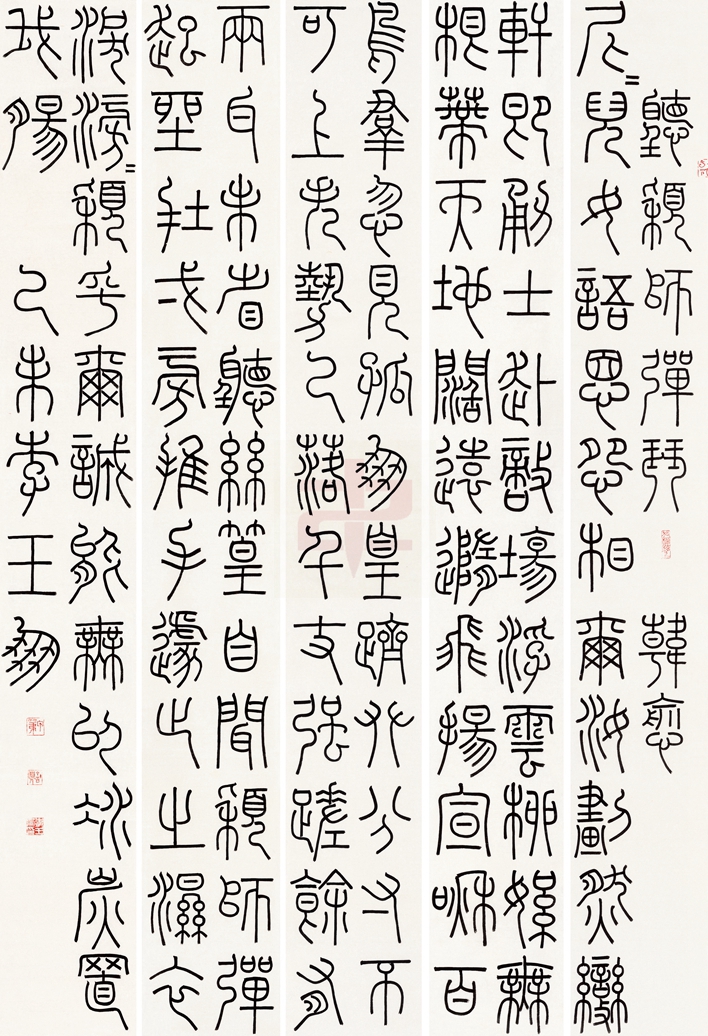 聽穎師彈琴 韓愈
尼=兒女語恩怨相爾汝劃然變
軒昂勇士赴敵場浮雲柳絮無
根蒂天地闊遠隨飛揚喧啾百
鳥羣忽見孤鳳皇躋攀分寸不
可上失勢一落千丈强嗟餘有
兩耳未省聽絲篁自聞穎師彈
起坐在弌旁推手遽止之濕衣
淚滂=穎乎爾誠能無以冰炭置
我腸 乙未李玉鳳